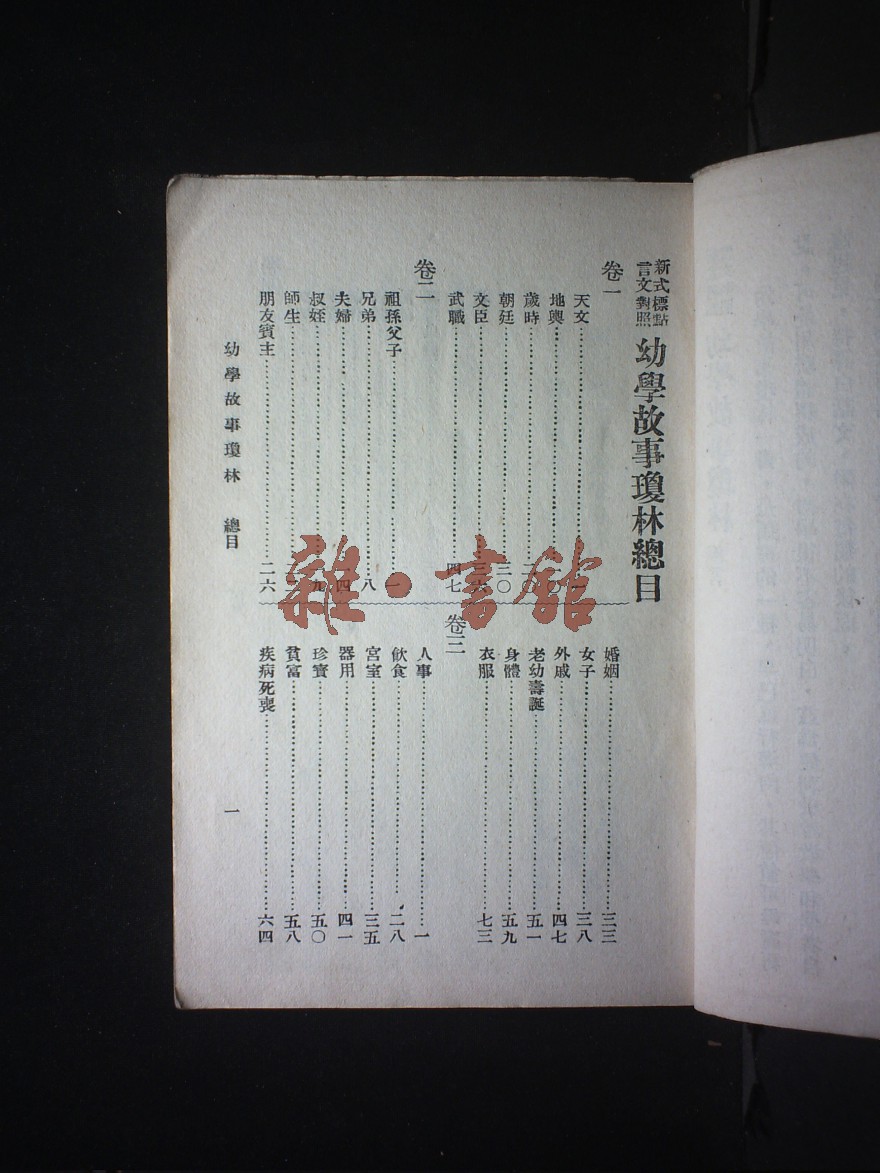 新式標點
言文對照
幼學故事瓊林總目
卷一
天文……一
地輿……
歲時……二〇
朝廷……三〇
文臣……三六
武職……四七
卷二
祖孫父子……一
兄弟……八
夫婦……四
叔姪……九
師生……
朋友賓主……二六
婚姻……三三
女子……三八
外戚……四七
老幼壽誕……五一
身體……五九
衣服……七三
卷三
人事……一
飲食……二八
宮室……三五
器用……四一
珍寶……五〇
貧富……五八
疾病死喪……六四
幼學故事瓊林 總目
一
雜·書館